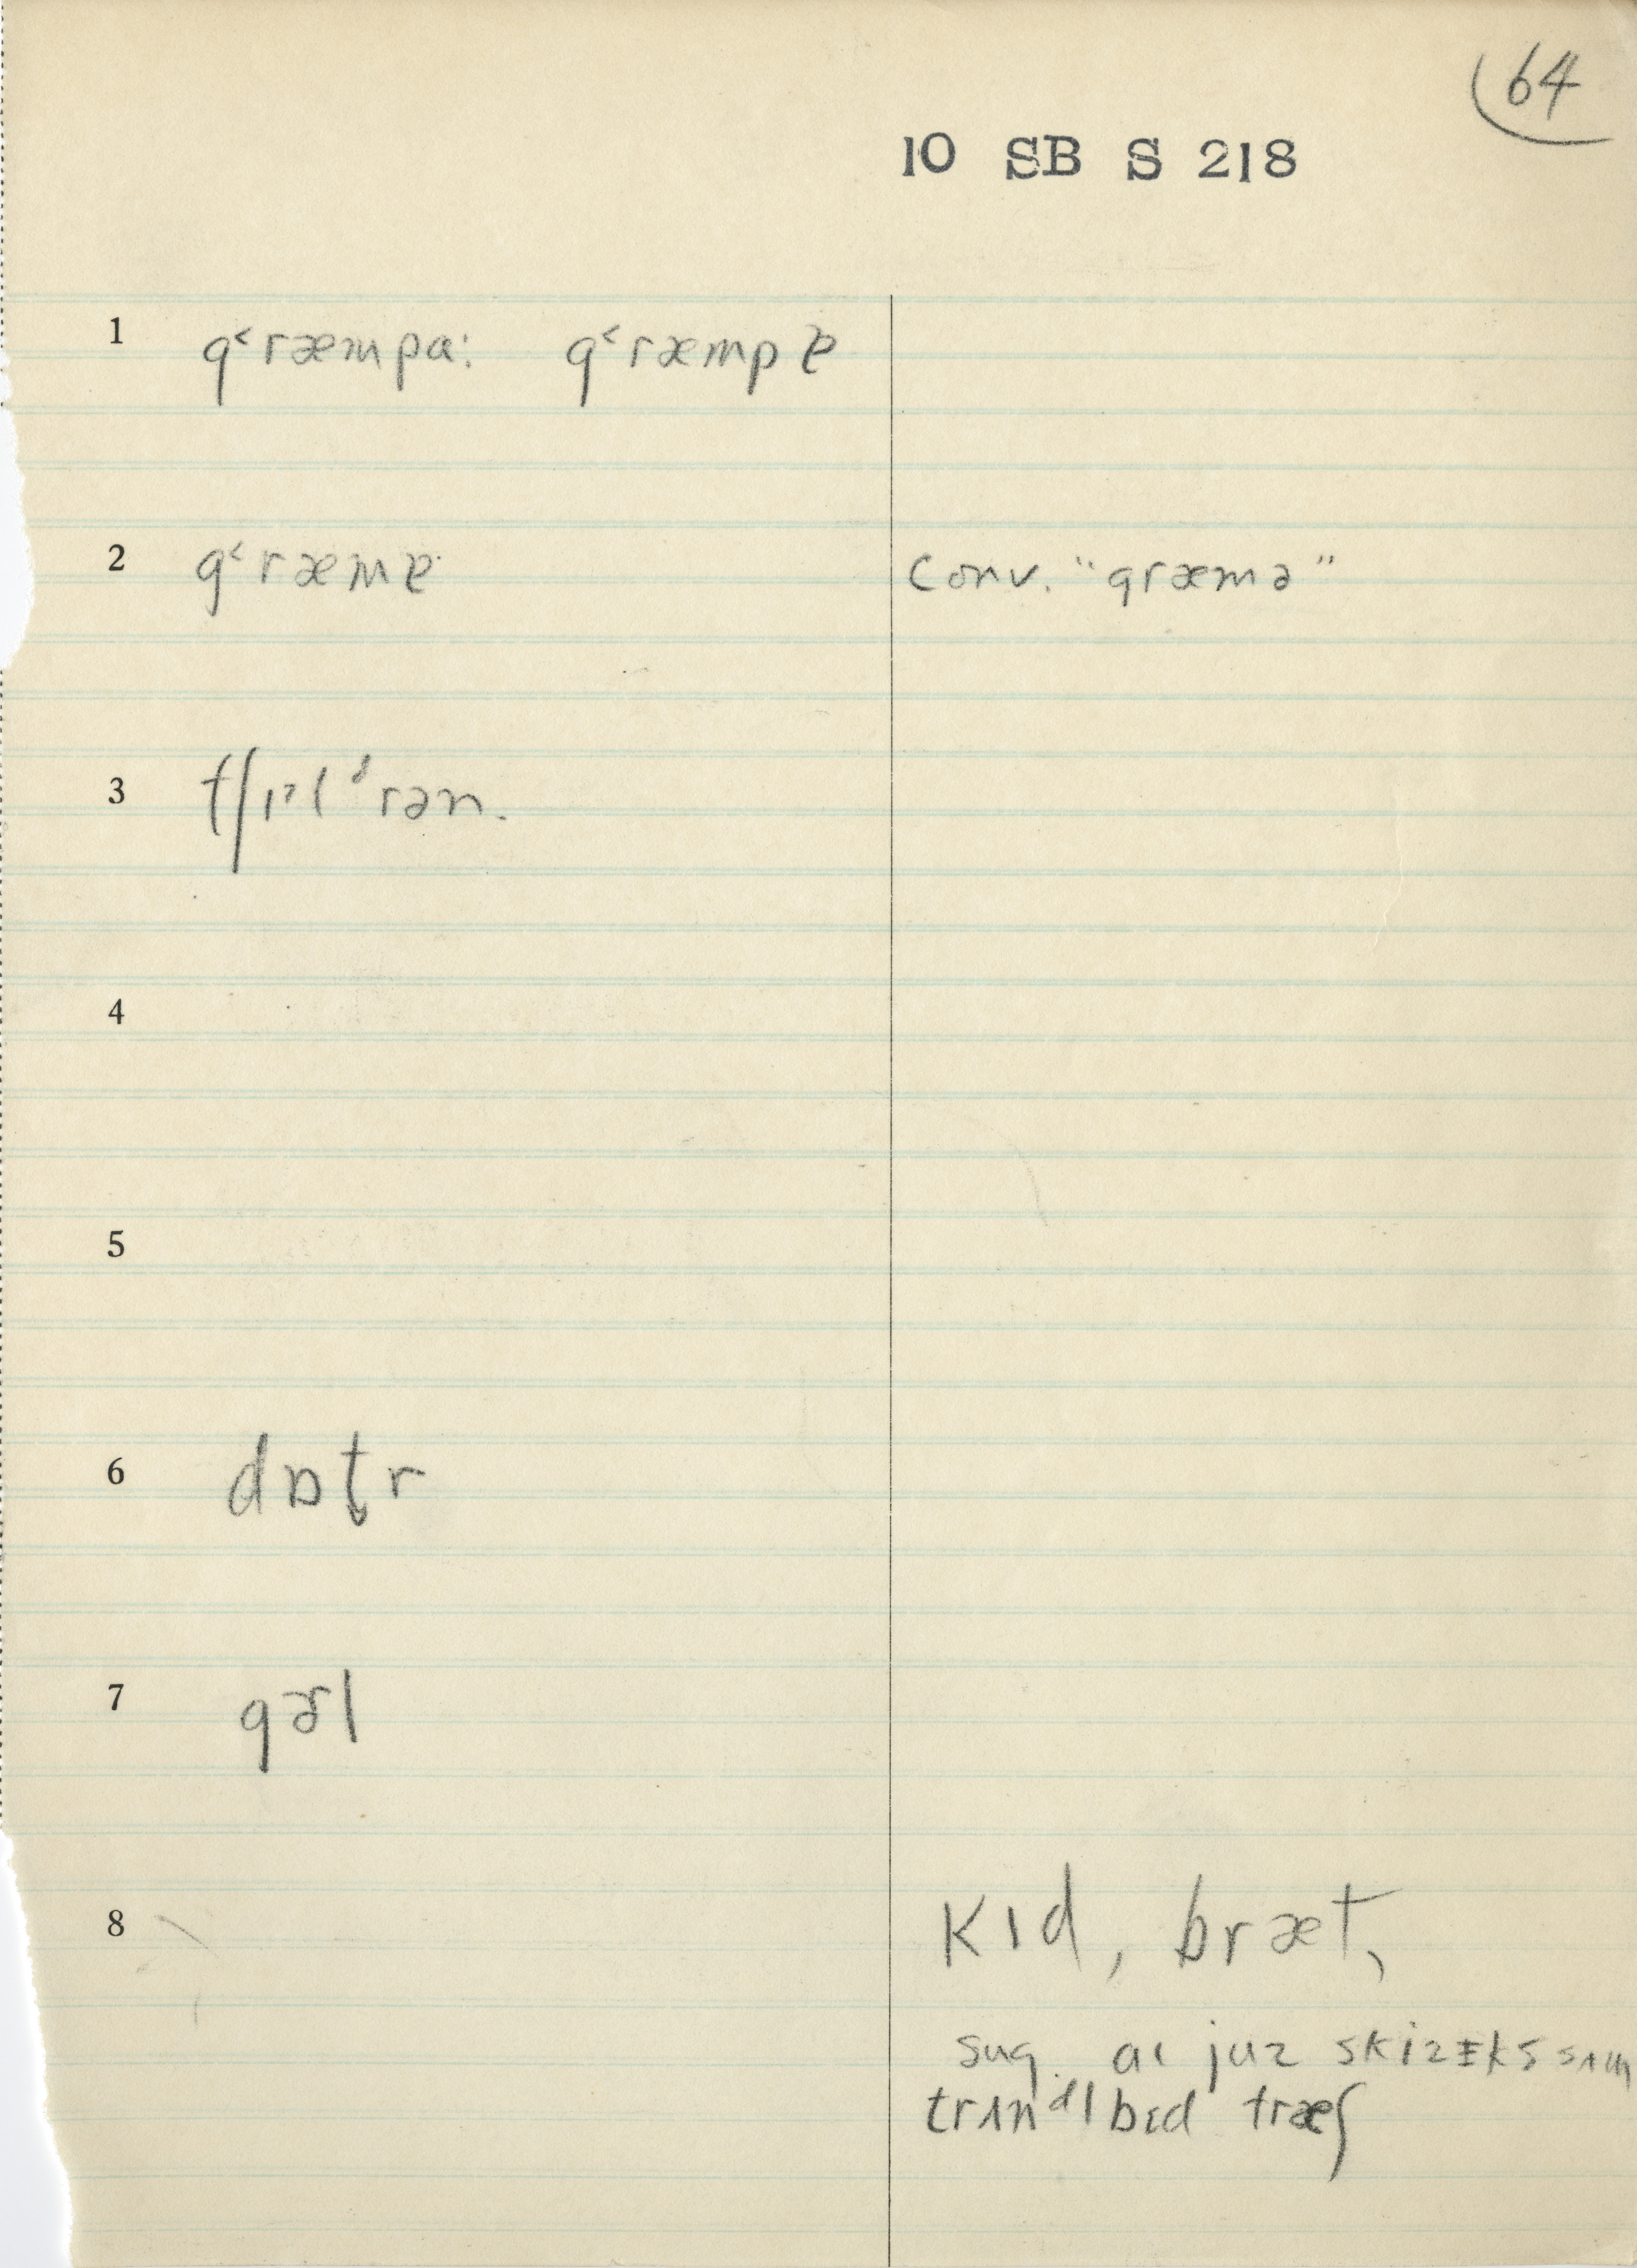 64
10 SB S 218
1 g˂ræmpa: g˂ræmpɐ
2 g˂ræmɐ conv. "græmə"
3 tʃɪl ᵈrən.
4
5
6 dɒt̬r
7 gɚl
8 kɪd, bræt,
sug. aɩ juz skizɛks sʌm
trʌnᵈl bɛd træʃ